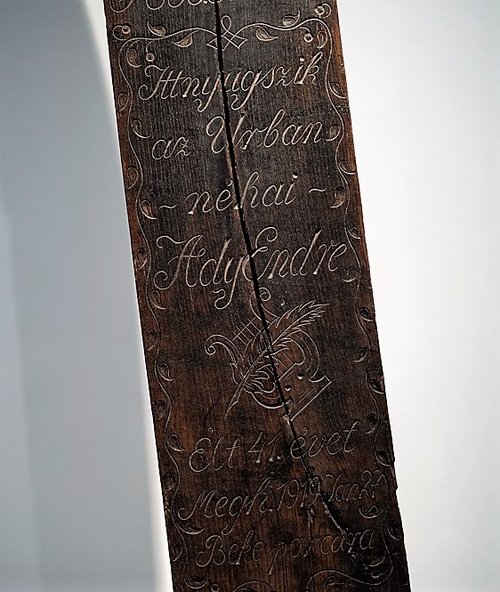 Itt nyugszik
az Úrban
~ néhai ~
Ady Endre
Élt 41. évet
Megh. 1919. Jan. 27.
Béke poraira